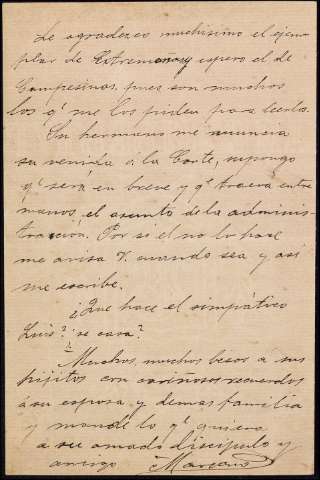 Le agradezco muchísimo el ejem-
plar de Extremeñas y espero el de
Campesinas, pues son muchos
los q.e me los piden para leerlos.
Su hermano me anuncia
su venida á la Corte, supongo
q.e será en breve y q.e traerá entre
manos, el asunto de la adminis-
tración. Por si él no lo hace
me avisa V. cuando sea, y así
me escribe.
¿Que hace el simpático
Luis? ¿se casa?
Muchos, muchos besos a sus
hijitos con cariñosos recuerdos
á su esposa, y demas familia
y mande lo q.e quiera
a su amado discípulo y
amigo Mariano